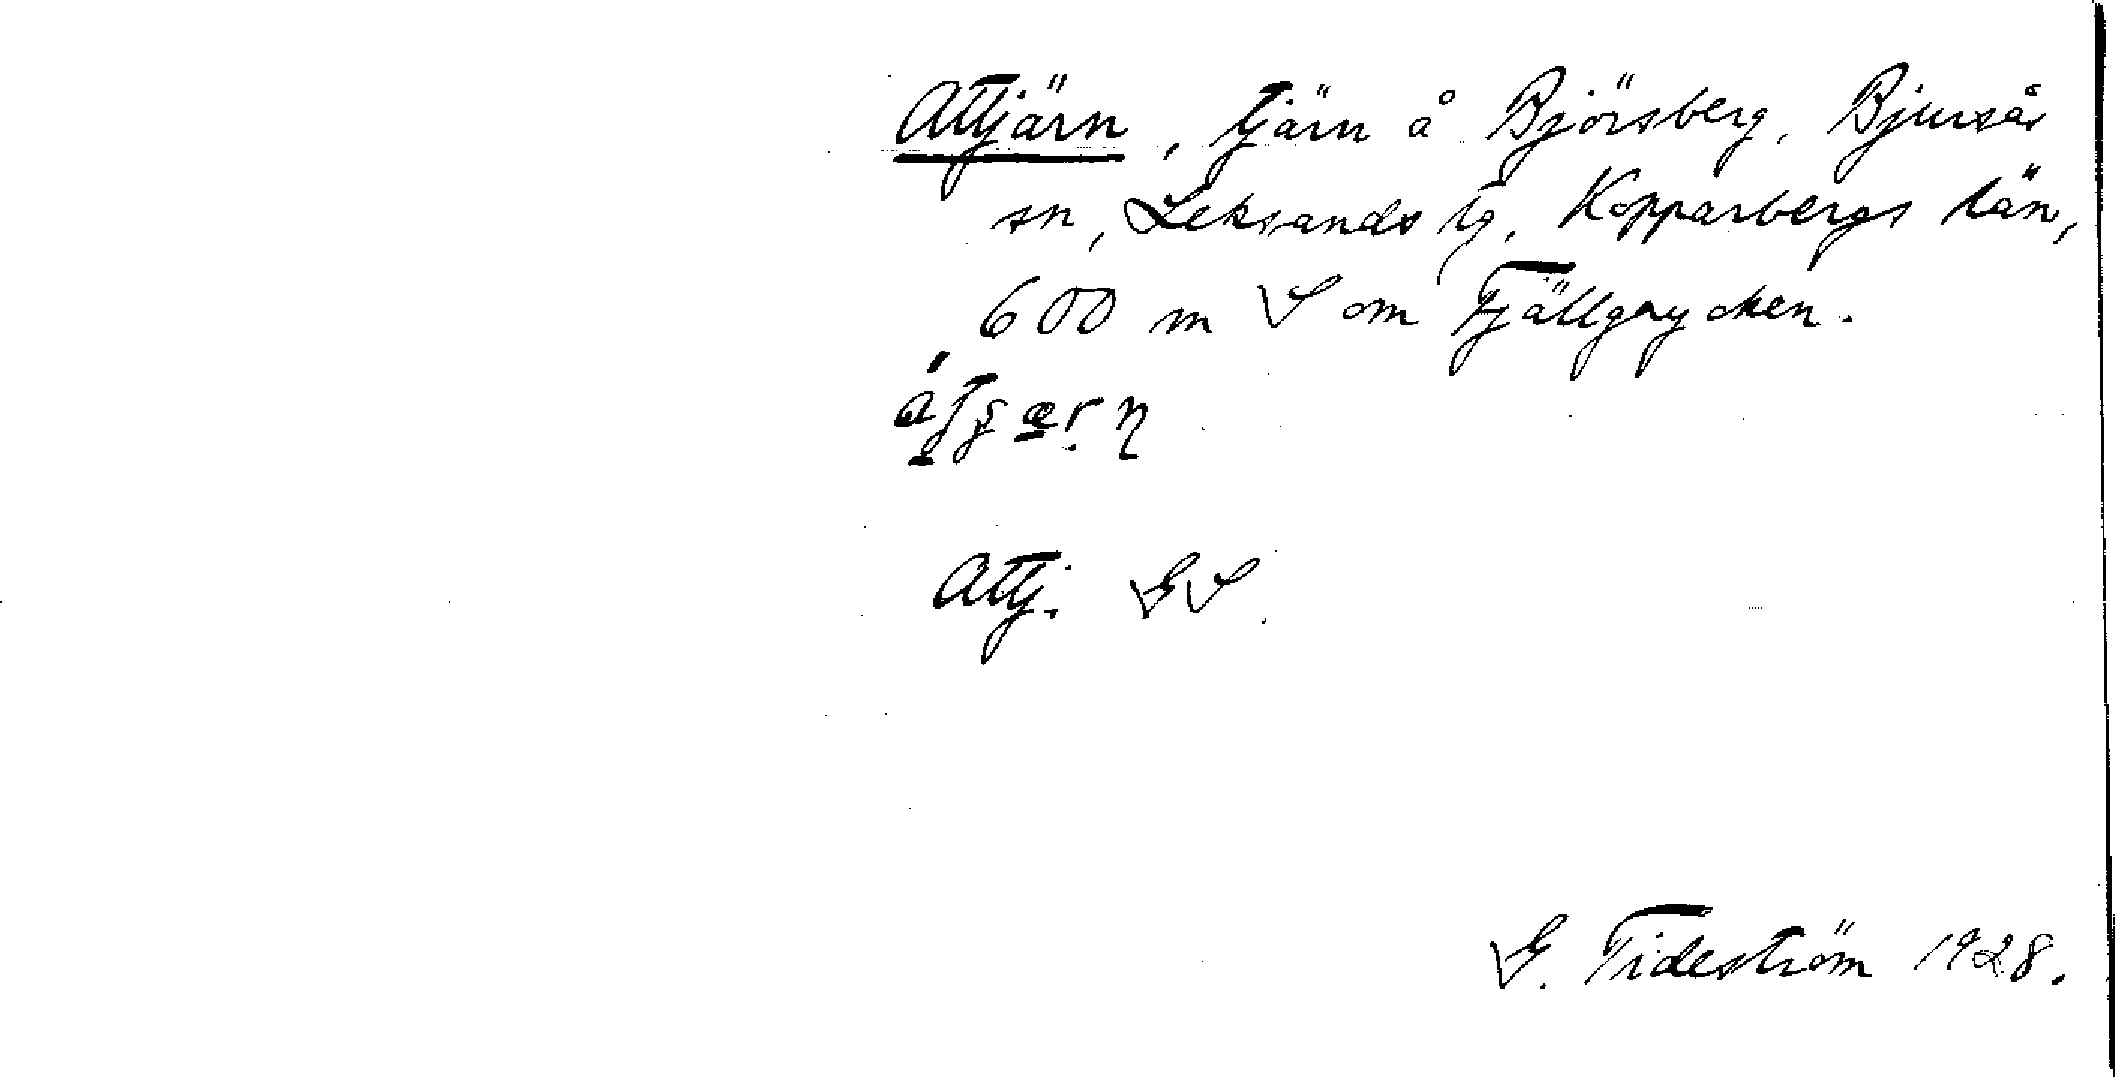 Attjärn, tjärn å Björsberg, Bjursås
sn, Leksands tg, Kopparbergs län,
600 m S om Fjällgrycken.
Attj. GS.
G. Tideström 1928.